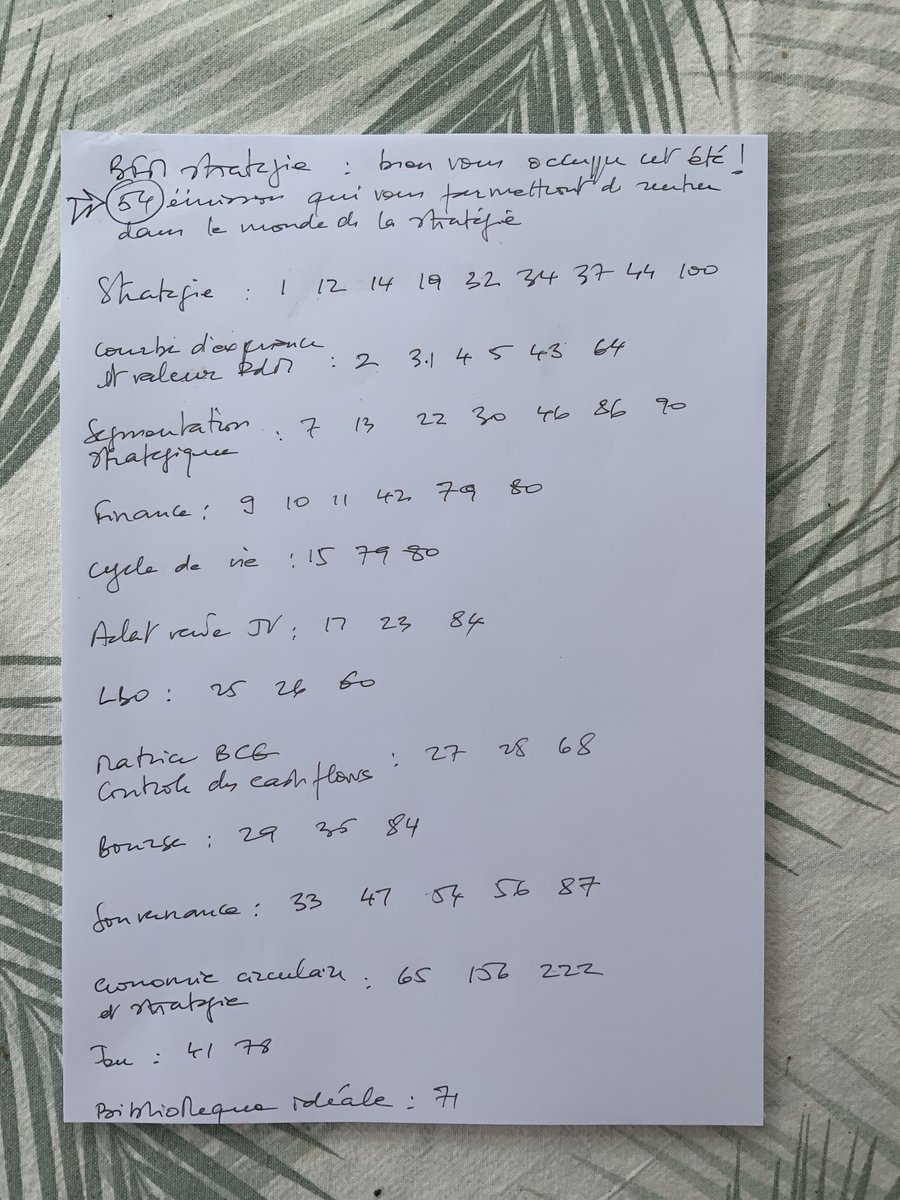 BFM stratégie : bien vous occuper cet été !
54 émissions qui vous permettront de rentrer
dans le monde de la stratégie
Stratégie : 1 12 14 19 32 34 37 44 100
Courbe d'expérience
et valeur RdM : 2 3.1 4 5 43 64
Segmentation
stratégique : 7 13 22 30 46 86 90
Finance : 9 10 11 42 79 80
Cycle de vie : 15 79 80
Achat vente JV : 17 23 84
LBO : 25 26 60
Matrice BCG
Controle des cash flows : 27 28 68
Bourse : 29 35 84
Gouvernance : 33 47 54 56 87
Economie circulaire
et stratégie : 65 156 222
Jeu : 41 78
Bibliotheque idéale : 71